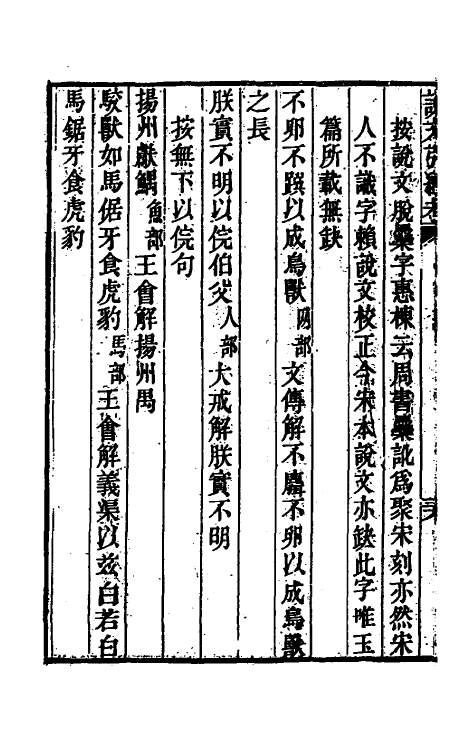 按說文脫字惠棟云周書訛爲聚宋刻亦然宋
人不識字賴說文校正今宋本說文亦缺此字唯玉
篇所載無缺
不卵不以成鳥獸网部文傳解不麛不卵以成鳥獸
之長
朕實不明以俒伯父人部大戒解朕實不明
按無下以俒句
揚州獻鰅魚部王會解揚州禺
駮獸如馬倨牙食虎豹馬部王會解義渠以茲白若白
馬鋸牙食虎豹